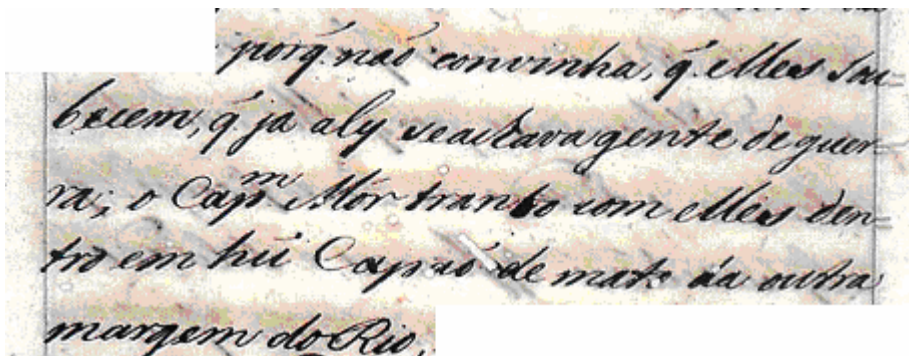 porq̃. não convinha, q̃. elles sou
becem, q̃. ja aly se achava gente de guer
ra; o Cap.m Mór tranbo com elles den
tro em hũ Capaõ de mato da outra
margem do Rio,